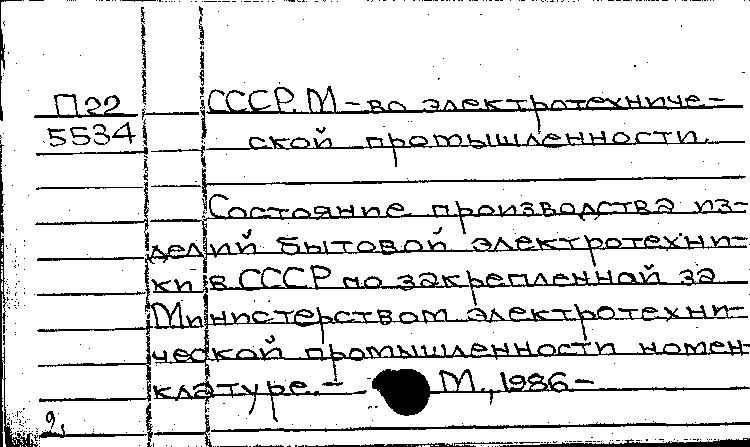 П22 СССР. М-во электротехниче-
5534 ской промышленности.
Состояние производства из-
делий бытовой электротехни-
ки в СССР по закрепленной за
Министерством электротехни-
ческой промышленности номен-
клатуре. - М., 1986 -
2,